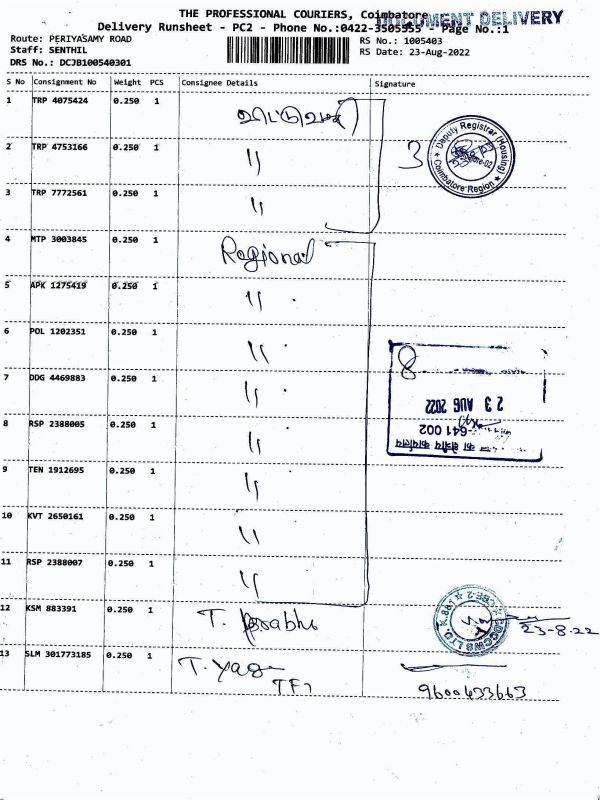 THE PROFESSIONAL COURIERS, Coimbatore
DOCUMENT DELIVERY
Delivery Runsheet - PC2 - Phone No.:0422-3505955 - Page No.:1
Route: PERIYASAMY ROAD
RS No.: 1005403
Staff: SENTHIL
RS Date: 23-Aug-2022
DRS No.: DCJB100540301
S No Consignment No Weight PCS Consignee Details Signature
1 TRP 4075424 0.250 1
2 TRP 4753166 0.250 1 〃 3
Deputy Registrar (Housing)
Coimbatore Region
3 TRP 7772561 0.250 1 〃
4 MTP 3003845 0.250 1 Regional
5 APK 1275419 0.250 1 〃
6 POL 1202351 0.250 1 〃
8
7 DDG 4469883 0.250 1 〃
23 AUG 2022
8 RSP 2388005 0.250 1 〃
-641 002
का क्षेत्रीय कार्यालय
9 TEN 1912695 0.250 1 〃
10 KVT 2650161 0.250 1 〃
11 RSP 2388007 0.250 1 〃
12 KSM 883391 0.250 1 T. Prabhu
23-8-22
13 SLM 301773185 0.250 1 T.
9600433663